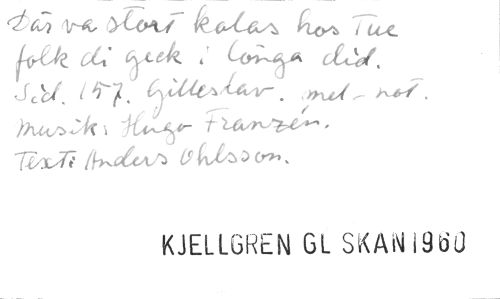 Där va stort kalas hos Tue
folk di geck i långa did.
Sid. 157. Gilleslav. mel-not.
Musik: Hugo Franzén.
Text: Anders Ohlsson.
KJELLGREN GL SKAN 1960